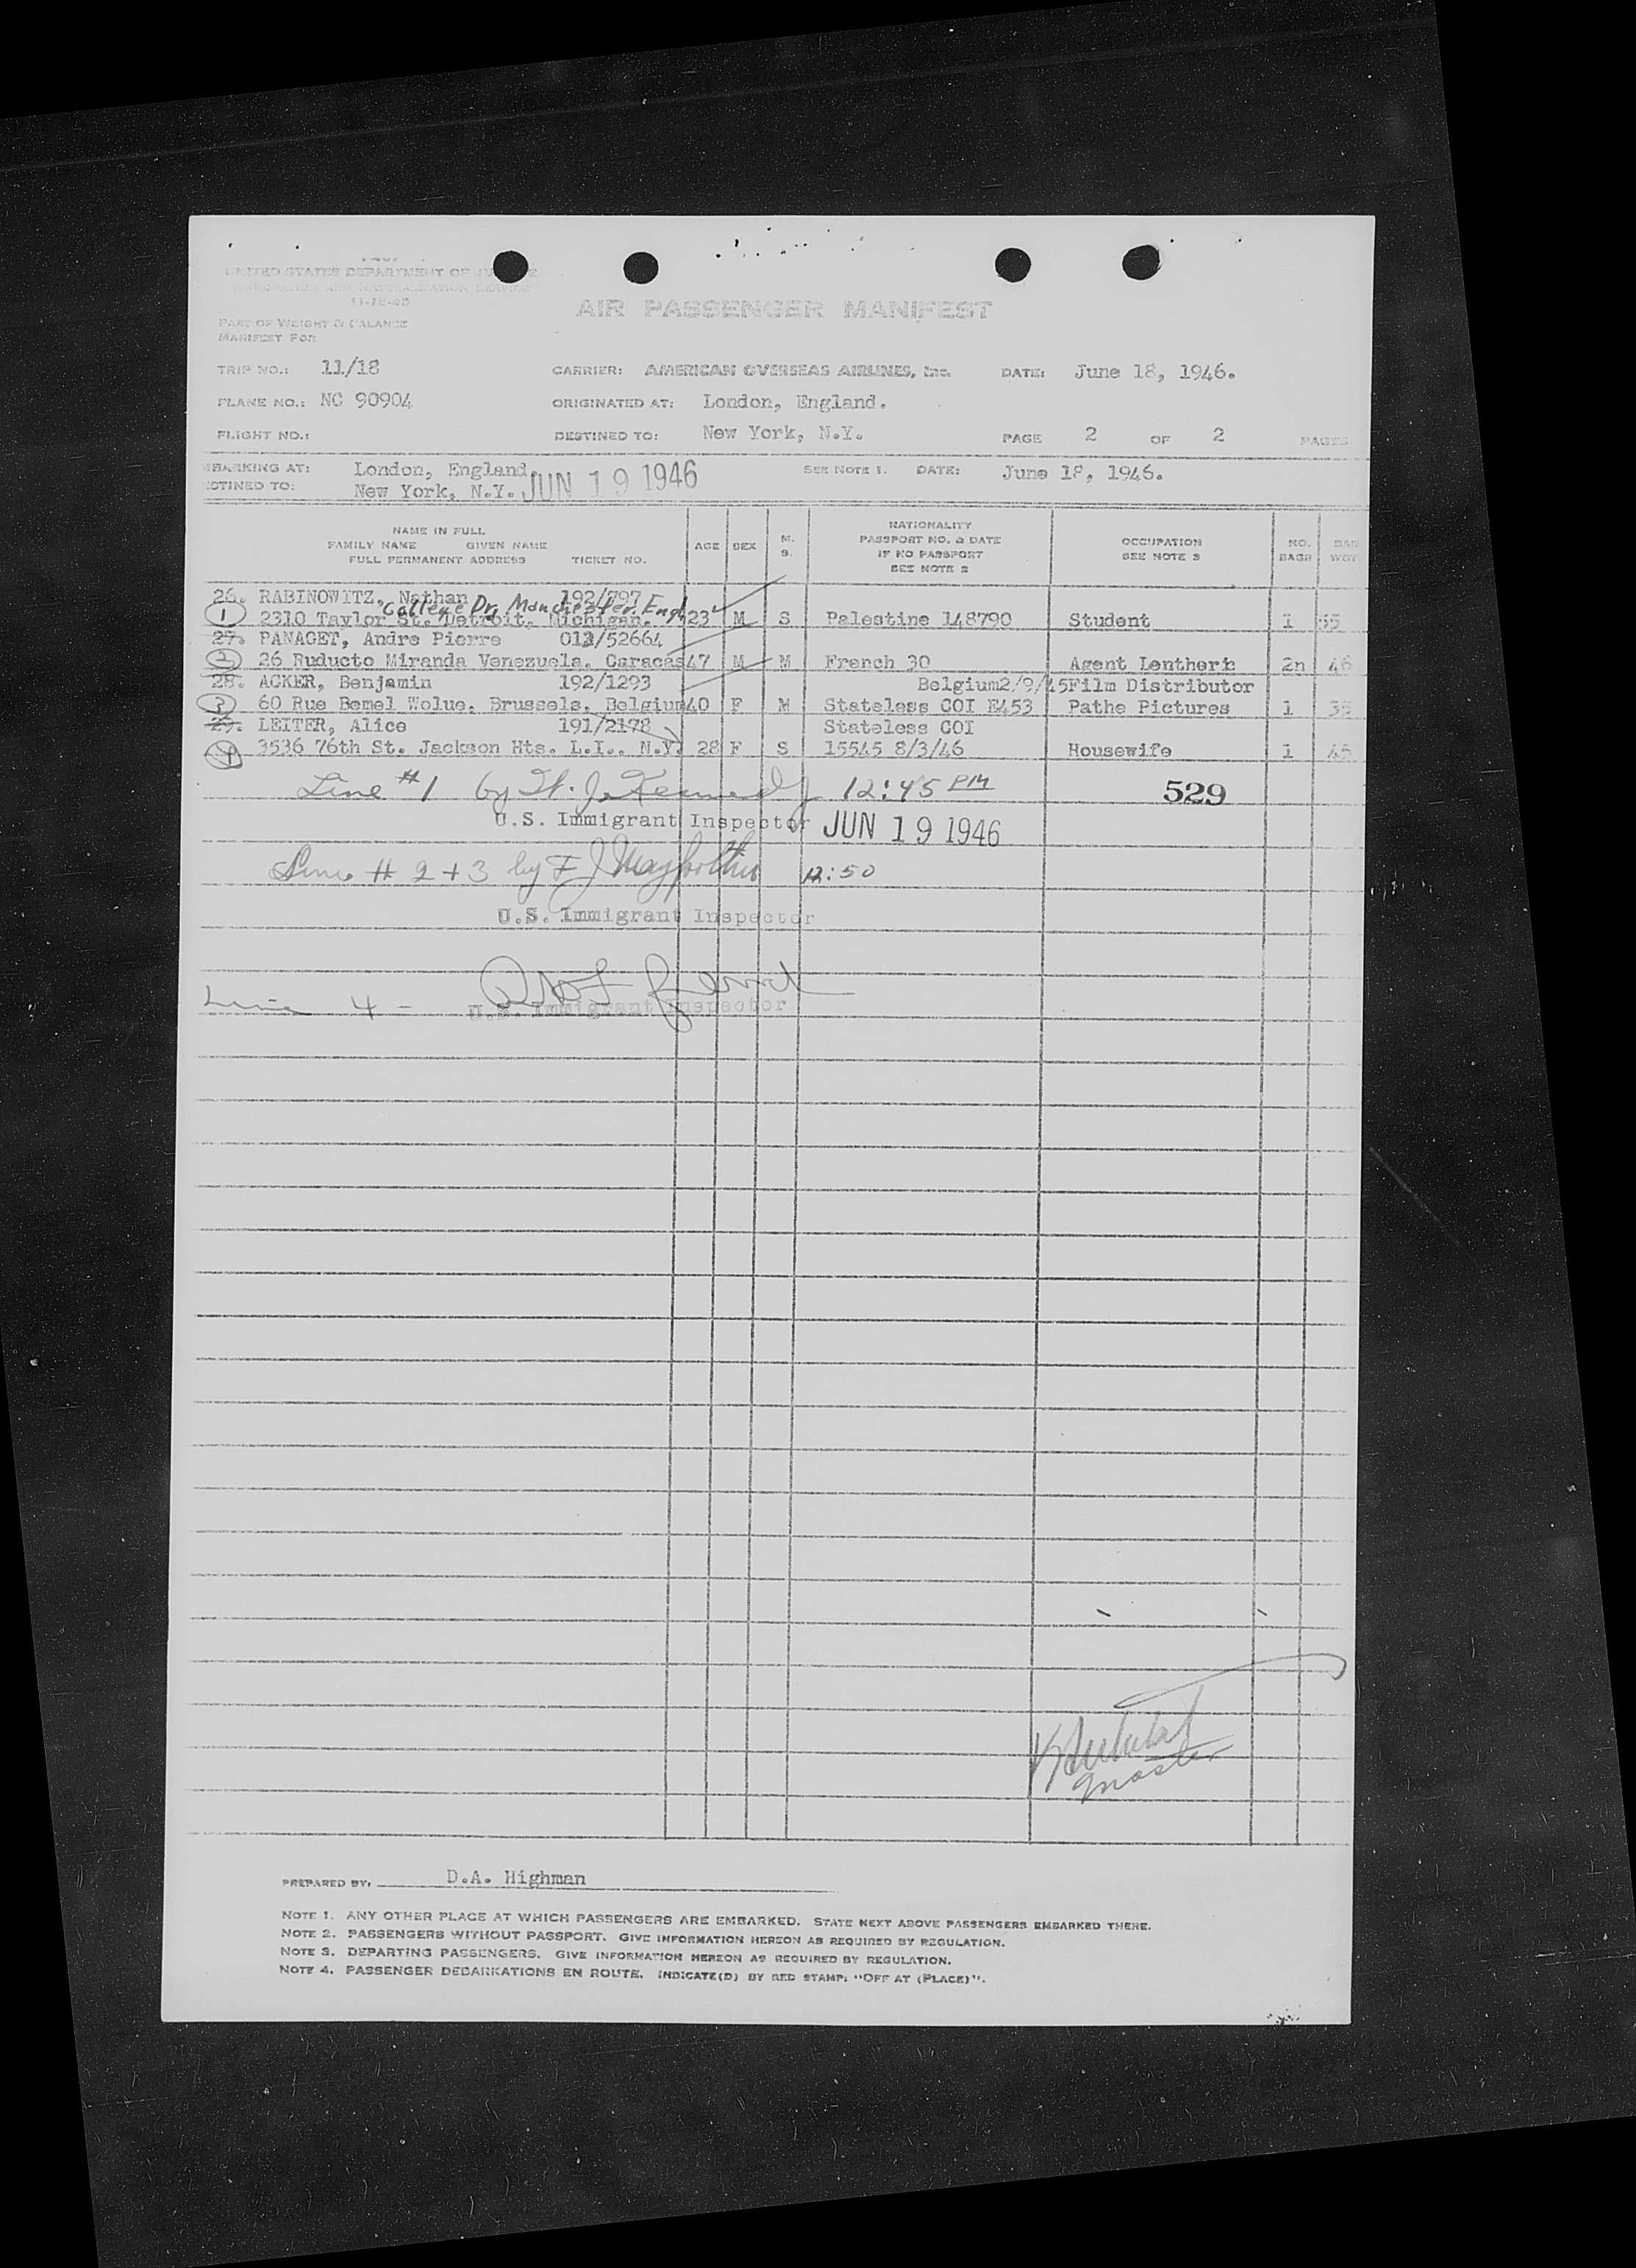 UNITED STATES DEPARTMENT OF JUSTICE
IMMIGRATION AND NATURALIZATION SERVICE
11-15-45
AIR PASSENGER MANIFEST
PART OF WEIGHT & BALANCE
MANIFEST FOR
TRIP NO.: 11/18 CARRIER: AMERICAN OVERSEAS AIRLINES, Inc. DATE: June 18, 1946.
PLANE NO.: NC 90904 ORIGINATED AT: London, England.
FLIGHT NO.: DESTINED TO: New York, N.Y. PAGE 2 OF 2 PAGES
MBARKING AT: London, England. SEE NOTE 1. DATE: June 18, 1946.
STINED TO: New York, N.Y. JUN 19 1946
NAME IN FULL
FAMILY NAME GIVEN NAME
FULL PERMANENT ADDRESS TICKET NO.
AGE SEX M. S.
NATIONALITY
PASSPORT NO. & DATE
IF NO PASSPORT
SEE NOTE 2
OCCUPATION
SEE NOTE 3
NO. BAGS
BAG WGT
26. RABINOWITZ, Nathan 192/797
College Dr, Manchester, Engl
1 2310 Taylor St. Detroit, Michigan. 23 M S Palestine 148790 Student 1 55
27. PANAGET, Andre Pierre 012/52664
2 26 Ruducto Miranda Venezuela. Caracas 47 M M French 30 Agent Lentheric 2n 46
28. ACKER, Benjamin 192/1293 Belgium 2/9/45 Film Distributor
3 60 Rue Bemel Wolue. Brussels. Belgium 40 F M Stateless COI E453 Pathe Pictures 1
29. LEITER, Alice 191/2178 Stateless COI
4 3536 76th St. Jackson Hts. L.I., N.Y. 28 F S 15545 8/3/46 Housewife 1 45
Line #1 by J. Kennedy 12:45 PM 529
U.S. Immigrant Inspector JUN 19 1946
Line # 2 + 3 by F J 12:50
U.S. Immigrant Inspector
Line 4 -
U.S. Immigrant Inspector
Master
PREPARED BY, D.A. Highman
NOTE 1. ANY OTHER PLACE AT WHICH PASSENGERS ARE EMBARKED. STATE NEXT ABOVE PASSENGERS EMBARKED THERE.
NOTE 2. PASSENGERS WITHOUT PASSPORT. GIVE INFORMATION HEREON AS REQUIRED BY REGULATION.
NOTE 3. DEPARTING PASSENGERS. GIVE INFORMATION HEREON AS REQUIRED BY REGULATION.
NOTE 4. PASSENGER DEBARKATIONS EN ROUTE. INDICATE(D) BY RED STAMP: "OFF AT (PLACE)".